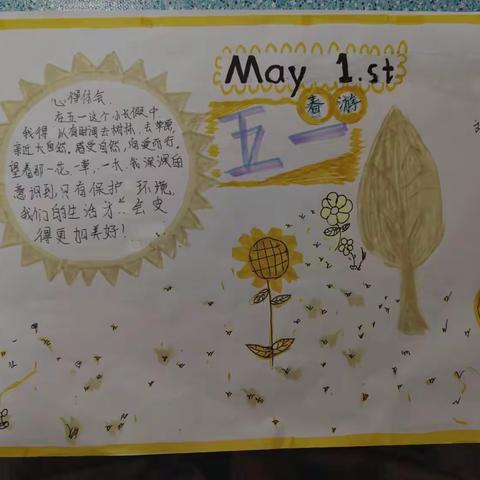 May 1.st
春游
五一
心得体会
在五一这个小长假中,
我得以有时间去树林,去草原,
亲近大自然,感受自然,向爱而行。
望着那一花、一草、一木,我深深的
意识到,只有保护环境,
我们的生活才会变
得更加美好!